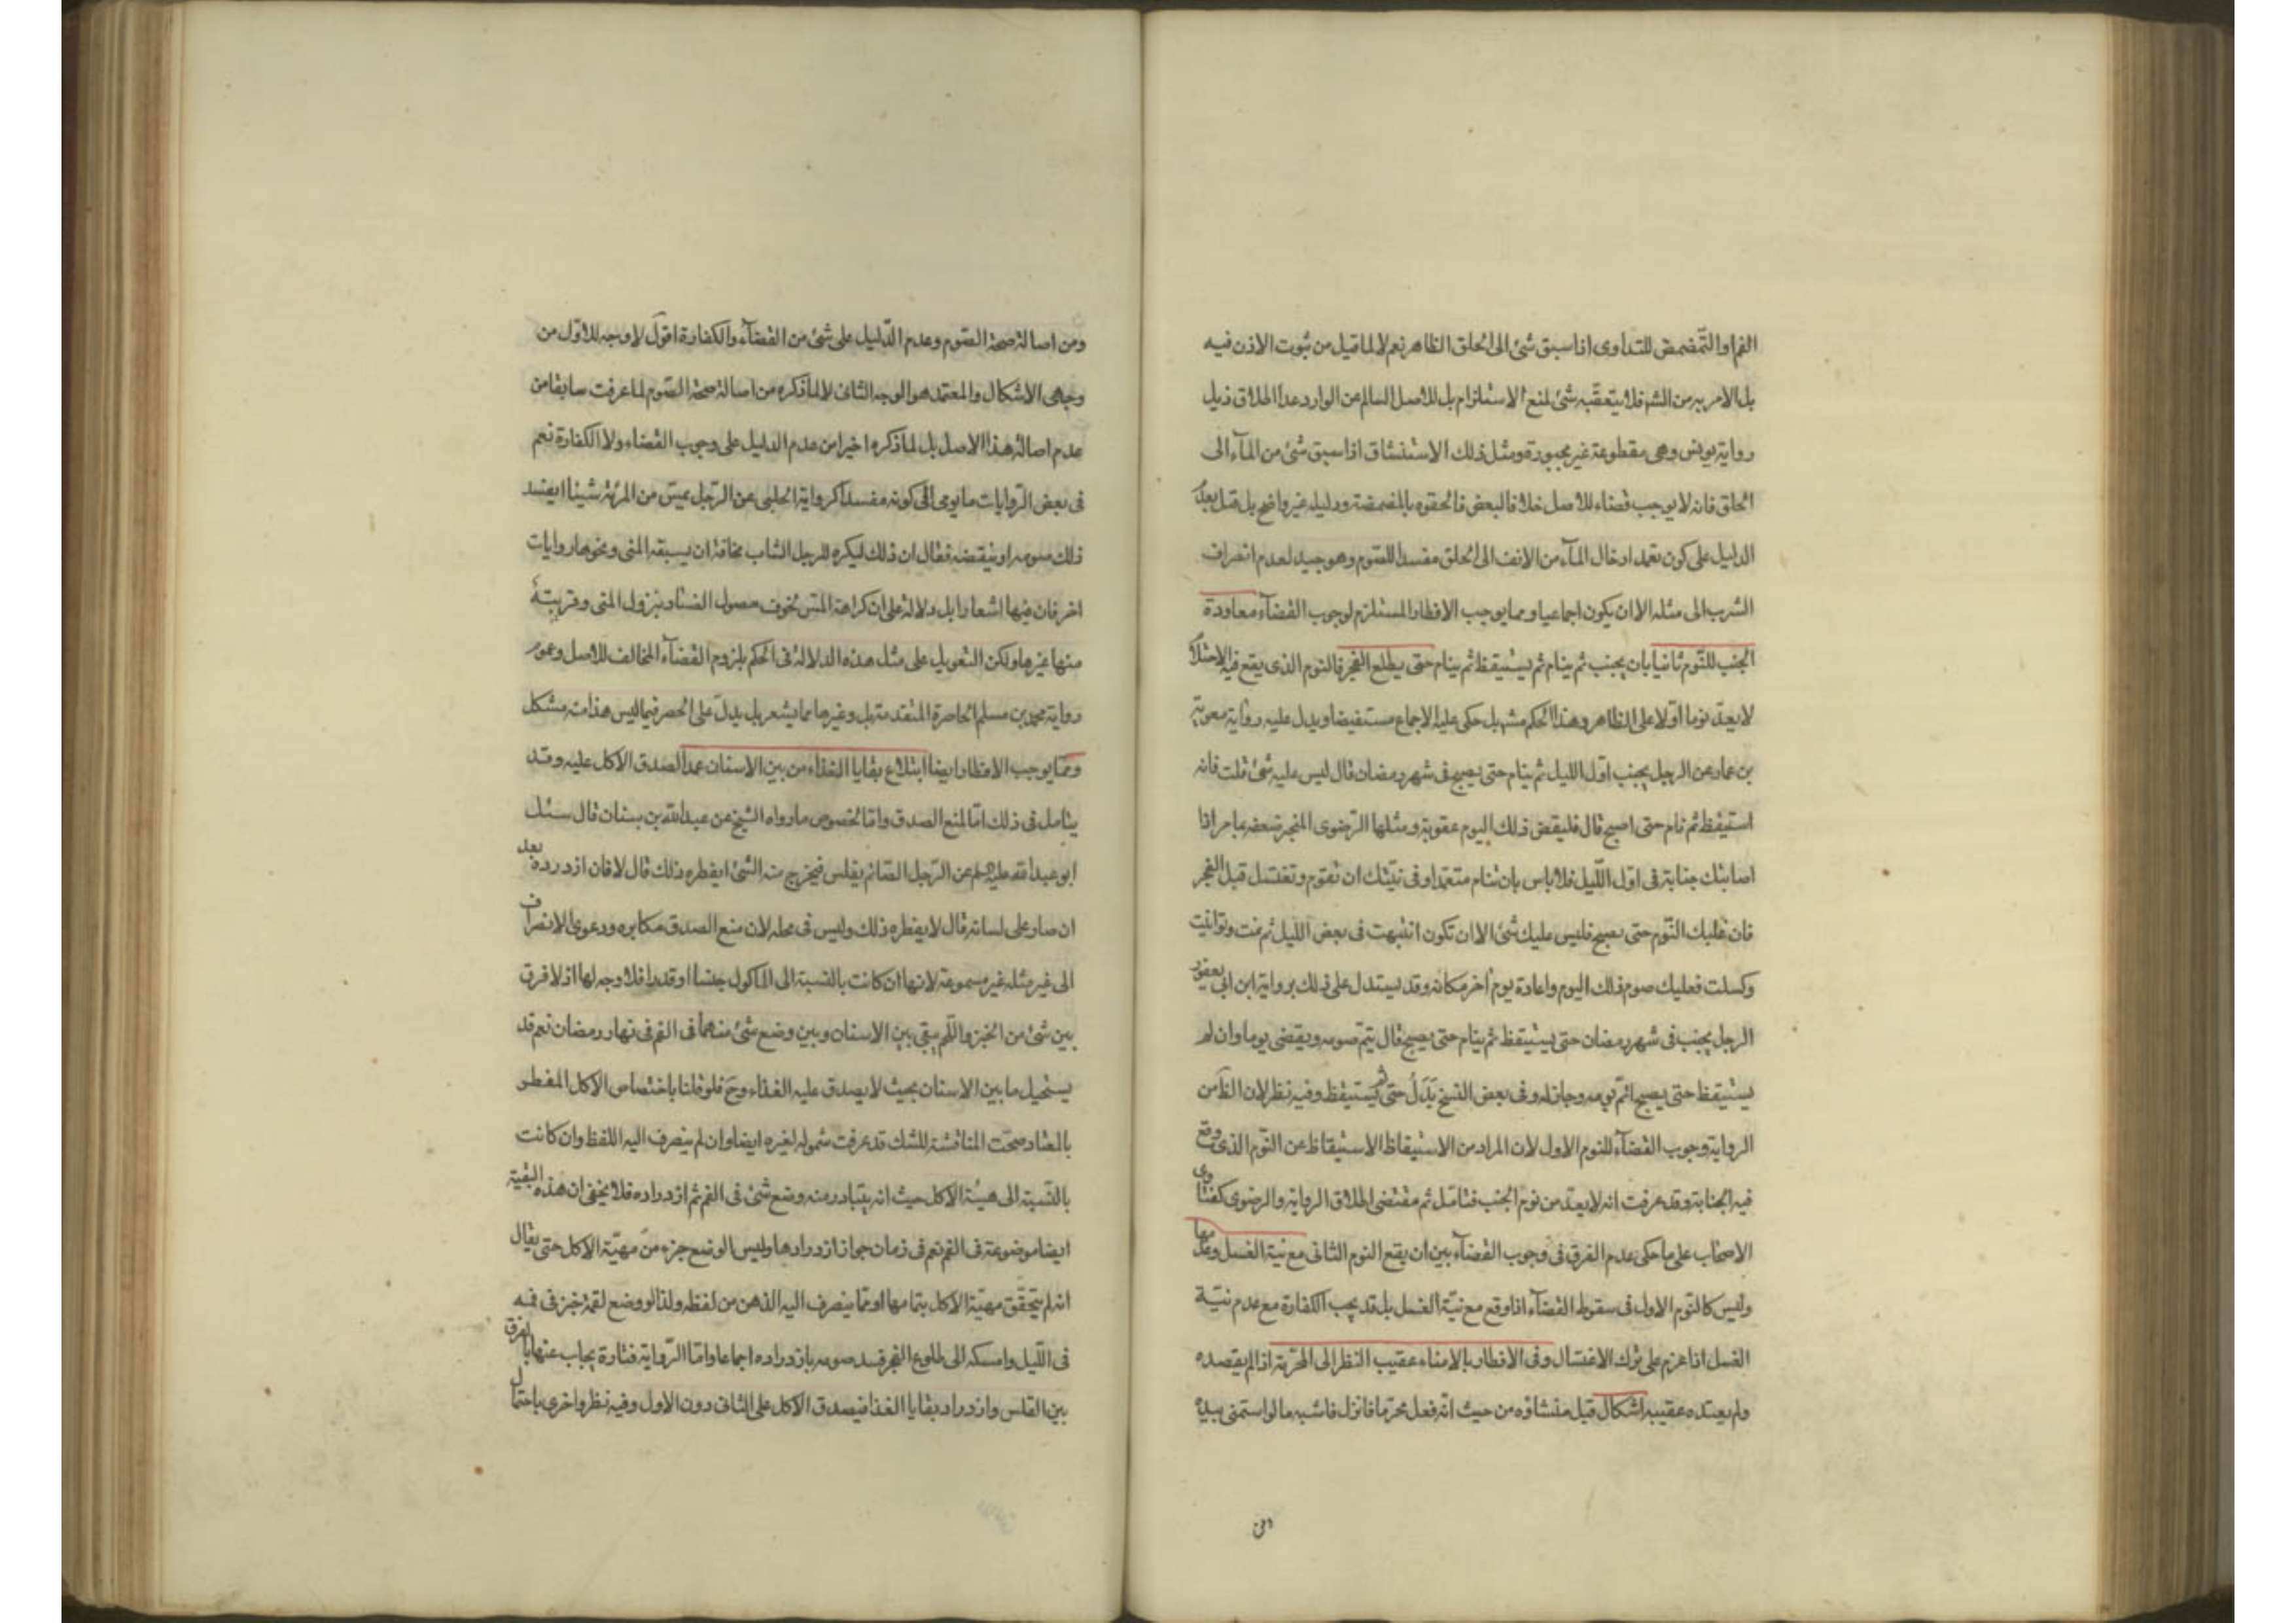 الفم او التمضمض للتداوى اذا سبق شئ الى الحلق الظاهر نعم لا لما قيل من ثبوت الاذن فيه
بل الامر به من الشرع فلا يتعقبه شئ لمنع الاستلزام بل للاصل السالم عن الوارد عدا اطلاق ذيل
رواية يونس وهى مقطوعة غير مجبورة ومثل ذلك الاستنشاق اذا سبق شئ من المآء الى
الحلق فانه لا يوجب قضاء للاصل خلافا لبعض فالحقوه بالمضمضة ودليله غير واضح بل قيل بعدم
الدليل على كون تعمد ادخال المآء من الانف الى الحلق مفسدا للصوم وهو جيد لعدم انصراف
الشرب الى مثله الا ان يكون اجماعيا ومما يوجب الافطار المستلزم لوجوب القضآء معاودة
الجنب للنوم ثانيا بان يجنب ثم ينام ثم يستيقظ ثم ينام حتى يطلع الفجر فالنوم الذى يقع فيه الاحتلام
لا يعدّ نوما اولا على الظاهر وهذا الحكم مشهور بل حكى عليه الاجماع مستفيضا ويدل عليه رواية معوية
بن عمار عن الرجل يجنب اول الليل ثم ينام حتى يصبح فى شهر رمضان قال ليس عليه شئ قلت فانه
استيقظ ثم نام حتى اصبح قال فليقض ذلك اليوم عقوبة ومثلها الرضوى المنجبر ضعفه بما مر اذا
اصابتك جنابة فى اول الليل فلا باس بان تنام متعمدا وفى نيتك ان تقوم وتغتسل قبل الفجر
فان غلبك النوم حتى يصبح فليس عليك شئ الا ان تكون انتبهت فى بعض الليل ثم نمت وتوانيت
وكسلت فعليك صوم ذلك اليوم واعادة يوم اخر مكانه وقد يستدل على ذلك برواية ابن ابى يعفور
الرجل يجنب فى شهر رمضان حتى يستيقظ ثم ينام حتى يصبح قال يتم صومه ويقضى يوما وان لم
يستيقظ حتى يصبح اتم يومه وجاز له وفى بعض النسخ بَدَلُ حتى ثم يستيقظ وفيه نظر لان الظ من
الرواية وجوب القضآء للنوم الاول لان المراد من الاستيقاظ الاستيقاظ عن النوم الذى وقع
فيه الجنابة وقد عرفت انه لا يعد من نوم الجنب فتامل ثم مقتضى اطلاق الرواية والرضوى كفتاوى
الاصحاب على ما حكى عدم الفرق فى وجوب القضآء بين ان يقع النوم الثانى مع نية الغسل وعدمها
وليس كالنوم الاول فى سقوط القضآء اذا وقع مع نية الغسل بل قد يجب الكفارة مع عدم نية
الغسل اذا عزم على ترك الاغتسال وفى الافطار بالامناء عقيب النظر الى المحرمة اذا لم يقصده
ولم يعتده عقيبه اشكال قيل منشاؤه من حيث انه فعل محرما فانزل فاشبه ما لو استمنى بيده
ومن اصالة صحة الصوم وعدم الدليل على شئ من القضآء والكفارة اقول لا وجه للاول من
وجهى الاشكال والمعتمد هو الوجه الثانى لا لما ذكره من اصالة صحة الصوم لما عرفت سابقا من
عدم اصالة هذا الاصل بل لما ذكره اخيرا من عدم الدليل على وجوب القضاء ولا الكفارة نعم
فى بعض الروايات ما يومى الى كونه مفسدا كرواية الحلبى عن الرجل يمس من المرئة شيئا ايفسد
ذلك صومه او ينقضه فقال ان ذلك ليكره للرجل الشاب مخافة ان يسبقه المنى ونحوها روايات
اخر فان فيها اشعارا بل دلالة على ان كراهة المس لخوف حصول الفساد بنزول المنى وقريبة
منها غيرها ولكن التعويل على مثل هذه الدلالة فى الحكم بلزوم القضآء المخالف للاصل وعموم
رواية محمد بن مسلم الحاصرة المتقدمة بل وغيرها مما يشعر بل يدل على الحصر فيما ليس هذا منه مشكل
ومما يوجب الافطار ايضا ابتلاع بقايا الغذاء من بين الاسنان عمدا لصدق الاكل عليه وقد
يتامل فى ذلك اما لمنع الصدق واما لخصوص ما رواه الشيخ عن عبد الله بن سنان قال سئل
ابو عبد الله عليه السلم عن الرجل الصائم يقلس فيخرج منه الشئ ايفطره ذلك قال لا فان ازدرده بعد
ان صار على لسانه قال لا يفطره ذلك وليس فى محله لان منع الصدق مكابره ودعوى الانصراف
الى غير مثله غير مسموعة لانها ان كانت بالنسبة الى الماكول جنسا او قدرا فلا وجه لها اذ لا فرق
بين شئ من الخبز واللحم يبقى بين الاسنان وبين وضع شئ منهما فى الفم فى نهار رمضان نعم قد
يستحيل ما بين الاسنان بحيث لا يصدق عليه الغذاء وح فلو قلنا باختصاص الاكل المفطر
بالمعتاد صحت المناقشة للشك قد عرفت شموله لغيره ايضا وان لم ينصرف اليه اللفظ وان كانت
بالنسبة الى هيئة الاكل حيث انه يتبادر منه وضع شئ فى الفم ثم ازدراده فلا يخفى ان هذه البقية
ايضا موضوعة فى الفم نعم فى زمان جواز ازدرادها وليس الوضع جزء من مهية الاكل حتى يقال
انه لم يتحقق مهية الاكل بتمامها او مما ينصرف اليه الذهن من لفظه ولذا لو وضع لقمة خبز فى فمه
فى الليل وامسكه الى طلوع الفجر فسد صومه بازدراده اجماعا واما الرواية فتارة يجاب عنها بالفرق
بين القلس وازدراد بقايا الغذا فيصدق الاكل على الثانى دون الاول وفيه نظر واخرى باحتمال